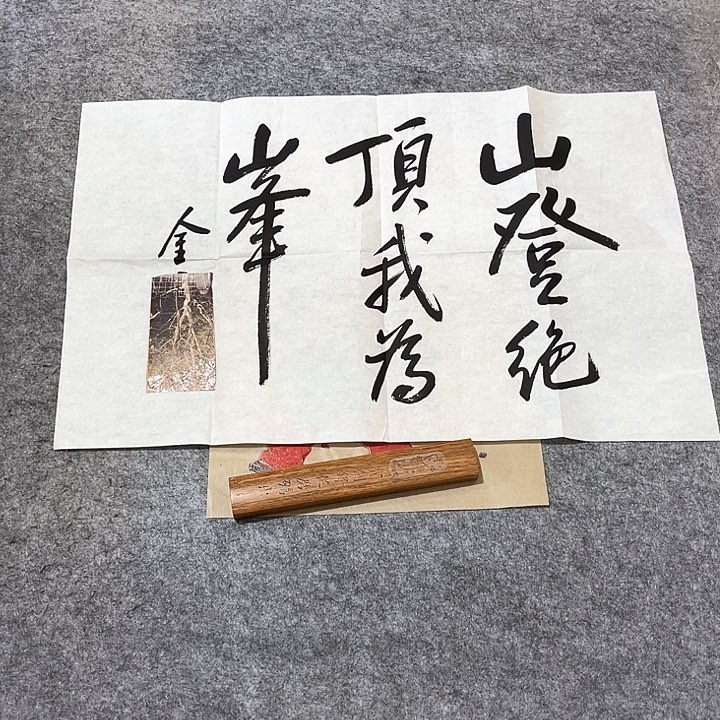 山登绝
頂我為
峯
金